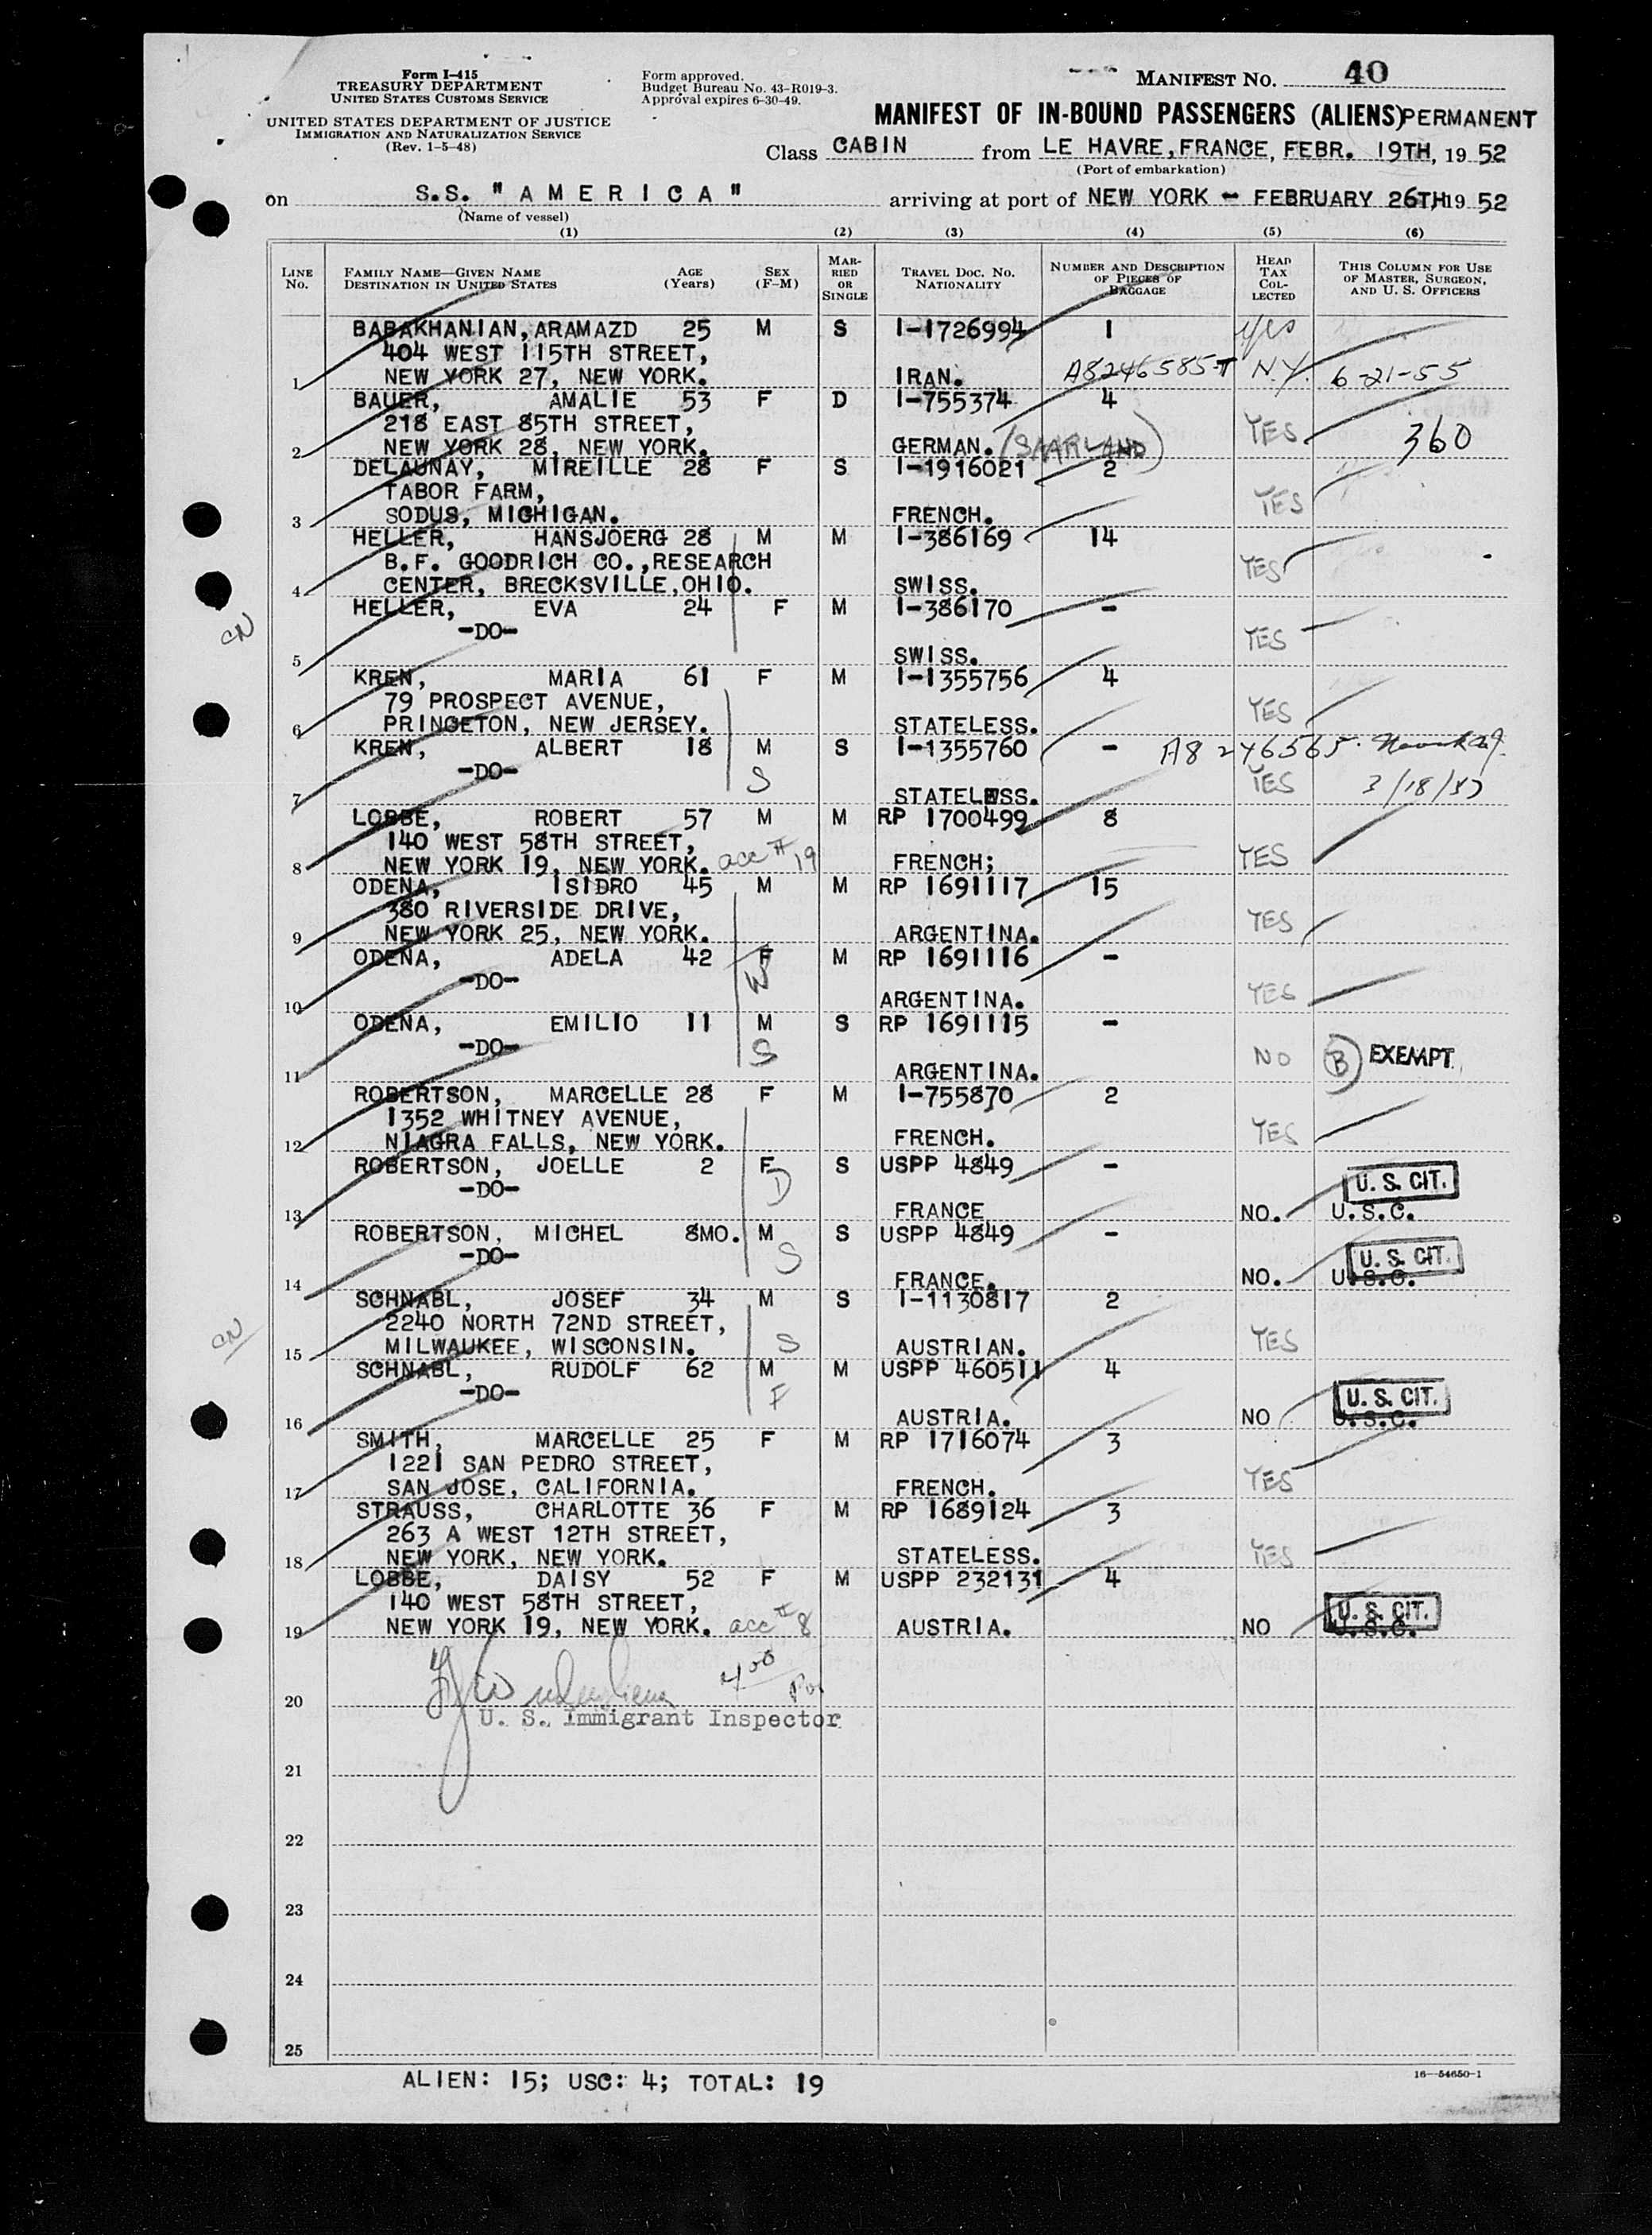 Form I-415
TREASURY DEPARTMENT
UNITED STATES CUSTOMS SERVICE
UNITED STATES DEPARTMENT OF JUSTICE
IMMIGRATION AND NATURALIZATION SERVICE
(Rev. 1-5-48)
Form approved.
Budget Bureau No. 43-R019-3.
Approval expires 6-30-49.
MANIFEST NO. 40
MANIFEST OF IN-BOUND PASSENGERS (ALIENS) PERMANENT
Class CABIN from LE HAVRE, FRANCE, FEBR. 19TH, 19 52
(Port of embarkation)
on S.S. "AMERICA" arriving at port of NEW YORK - FEBRUARY 26TH, 19 52
(Name of vessel)
(1) (2) (3) (4) (5) (6)
LINE No. FAMILY NAME—GIVEN NAME DESTINATION IN UNITED STATES AGE (Years) SEX (F-M) MARRIED OR SINGLE TRAVEL DOC. NO. NATIONALITY NUMBER AND DESCRIPTION OF PIECES OF BAGGAGE HEAD TAX COLLECTED THIS COLUMN FOR USE OF MASTER, SURGEON, AND U. S. OFFICERS
BABAKHANIAN, ARAMAZD 25 M S I-1726994 1 yes
404 WEST 115TH STREET,
1 NEW YORK 27, NEW YORK. IRAN. A8246585-T N.Y. 6-21-55
BAUER, AMALIE 53 F D I-755374 4
218 EAST 85TH STREET, YES 360
2 NEW YORK 28, NEW YORK. GERMAN. (SAARLAND)
DELAUNAY, MIREILLE 28 F S I-1916021 2
TABOR FARM, YES
3 SODUS, MICHIGAN. FRENCH.
HELLER, HANSJOERG 28 M M I-386169 14
B.F. GOODRICH CO., RESEARCH YES
4 CENTER, BRECKSVILLE, OHIO. SWISS.
HELLER, EVA 24 F M I-386170 -
CN -DO- YES
5 SWISS.
KREN, MARIA 61 F M I-1355756 4
79 PROSPECT AVENUE, YES
6 PRINCETON, NEW JERSEY. STATELESS.
KREN, ALBERT 18 M S I-1355760 - A8 246565
-DO- S YES 3/18/
7 STATELESS.
LOBBE, ROBERT 57 M M RP 1700499 8
140 WEST 58TH STREET,
8 NEW YORK 19, NEW YORK. acc # 19 FRENCH; YES
ODENA, ISIDRO 45 M M RP 1691117 15
380 RIVERSIDE DRIVE, YES
9 NEW YORK 25, NEW YORK. ARGENTINA.
ODENA, ADELA 42 F M RP 1691116 -
-DO- W YES
10 ARGENTINA.
ODENA, EMILIO 11 M S RP 1691115 -
-DO- S NO B EXEMPT
11 ARGENTINA.
ROBERTSON, MARCELLE 28 F M I-755870 2
1352 WHITNEY AVENUE, YES
12 NIAGRA FALLS, NEW YORK. FRENCH.
ROBERTSON, JOELLE 2 F S USPP 4849 -
-DO- D U. S. CIT.
13 FRANCE NO. U.S.C.
ROBERTSON, MICHEL 8MO. M S USPP 4849 -
-DO- S U. S. CIT.
14 FRANCE. NO. U.S.C.
SCHNABL, JOSEF 34 M S I-1130817 2
CN 2240 NORTH 72ND STREET, S YES
15 MILWAUKEE, WISCONSIN. AUSTRIAN.
SCHNABL, RUDOLF 62 M M USPP 460511 4
-DO- F U. S. CIT.
16 AUSTRIA. NO U.S.C.
SMITH, MARCELLE 25 F M RP 1716074 3
1221 SAN PEDRO STREET,
17 SAN JOSE, CALIFORNIA. FRENCH. YES
STRAUSS, CHARLOTTE 36 F M RP 1689124 3
263 A WEST 12TH STREET,
18 NEW YORK, NEW YORK. STATELESS. YES
LOBBE, DAISY 52 F M USPP 232131 4
140 WEST 58TH STREET, U. S. CIT.
19 NEW YORK 19, NEW YORK. acc # 8 AUSTRIA. NO U.S.C.
20
U. S. Immigrant Inspector
21
22
23
24
25
ALIEN: 15; USC: 4; TOTAL: 19
16—54650-1